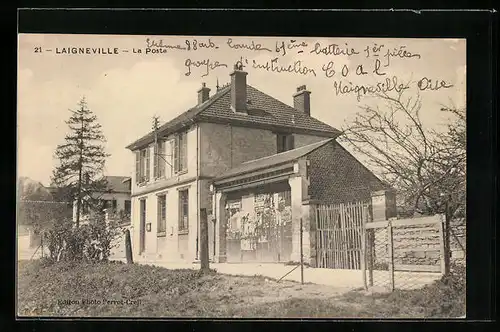 21 — LAIGNEVILLE — La Poste
65ème batterie 1er pièces
groupe d'instruction C O A L
Laigneville Oise
Edition Photo Perret-Creil